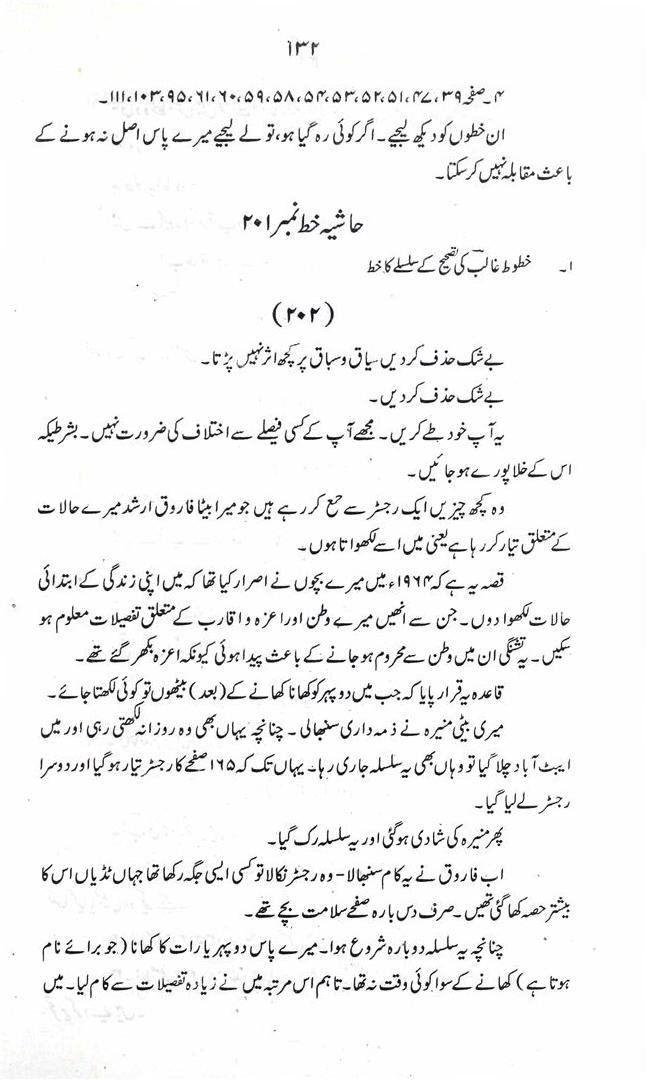 ۱۳۲
۴۔ صفحہ ۳۹، ۴۷، ۵۱، ۵۲، ۵۳، ۵۴، ۵۸، ۵۹، ۶۰، ۶۱، ۹۵، ۱۰۳، ۱۱۱۔
ان خطوں کو دیکھ لیجیے۔ اگر کوئی رہ گیا ہو، تو لے لیجیے میرے پاس اصل نہ ہونے کے
باعث مقابلہ نہیں کر سکتا۔
حاشیہ خط نمبر ۲۰۱
۱۔ خطوط غالبؔ کی تصحیح کے سلسلے کا خط
(۲۰۲)
بے شک حذف کر دیں سیاق و سباق پر کچھ اثر نہیں پڑتا۔
بے شک حذف کر دیں۔
یہ آپ خود طے کریں۔ مجھے آپ کے کسی فیصلے سے اختلاف کی ضرورت نہیں۔ بشرطیکہ
اس کے خلا پورے ہو جائیں۔
وہ کچھ چیزیں ایک رجسٹر سے جمع کر رہے ہیں جو میرا بیٹا فاروق ارشد میرے حالات
کے متعلق تیار کر رہا ہے یعنی میں اسے لکھواتا ہوں۔
قصہ یہ ہے کہ ۱۹۶۴ء میں میرے بچوں نے اصرار کیا تھا کہ میں اپنی زندگی کے ابتدائی
حالات لکھوا دوں۔ جن سے انھیں میرے وطن اور اعزہ و اقارب کے متعلق تفصیلات معلوم ہو
سکیں۔ یہ تشنگی ان میں وطن سے محروم ہو جانے کے باعث پیدا ہوئی کیونکہ اعزہ بکھر گئے تھے۔
قاعدہ یہ قرار پایا کہ جب میں دوپہر کو کھانا کھانے کے (بعد) بیٹھوں تو کوئی لکھتا جائے۔
میری بیٹی منیرہ نے ذمہ داری سنبھالی۔ چنانچہ یہاں بھی وہ روزانہ لکھتی رہی اور میں
ایبٹ آباد چلا گیا تو وہاں بھی یہ سلسلہ جاری رہا۔ یہاں تک کہ ۱۶۵ صفحے کا رجسٹر تیار ہو گیا اور دوسرا
رجسٹر لے لیا گیا۔
پھر منیرہ کی شادی ہو گئی اور یہ سلسلہ رک گیا۔
اب فاروق نے یہ کام سنبھالا - وہ رجسٹر نکالا تو کسی ایسی جگہ رکھا تھا جہاں ٹڈیاں اس کا
بیشتر حصہ کھا گئی تھیں۔ صرف دس بارہ صفحے سلامت بچے تھے۔
چنانچہ یہ سلسلہ دوبارہ شروع ہوا۔ میرے پاس دوپہر یا رات کا کھانا (جو برائے نام
ہوتا ہے) کھانے کے سوا کوئی وقت نہ تھا۔ تاہم اس مرتبہ میں نے زیادہ تفصیلات سے کام لیا۔ میں